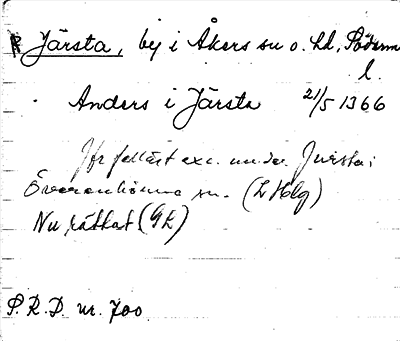 R Järsta, by i Åkers sn o. hd, Söderm
l.
Anders i Järsta 21/5 1366
Jfr felläst exc. under Jursta i
Överenhörna sn. (L Hlg)
Nu rättat (GL)
P.R.D. nr. 700